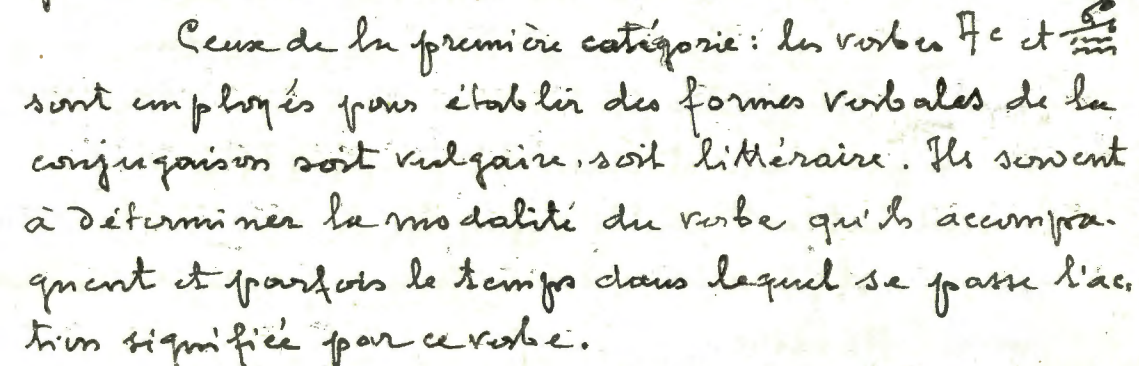 Ceux de la première catégorie: les verbes et
sont employés pour établir des formes verbales de la
conjugaison soit vulgaire, soit littéraire. Ils servent
à déterminer la modalité du verbe qu'ils accompa-
gnent et parfois le temps dans lequel se passe l'ac-
tion signifiée par ce verbe.